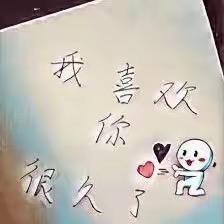 我喜欢
你
很久了